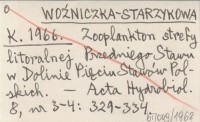 WOŹNICZKA-STARZYKOWA
K. 1966. Zooplankton strefy
litoralnej Przedniego Stawu
w Dolinie Pięciu Stawów Pol-
skich. — Acta Hydrobiol.
8, nr 3-4: 329-334.